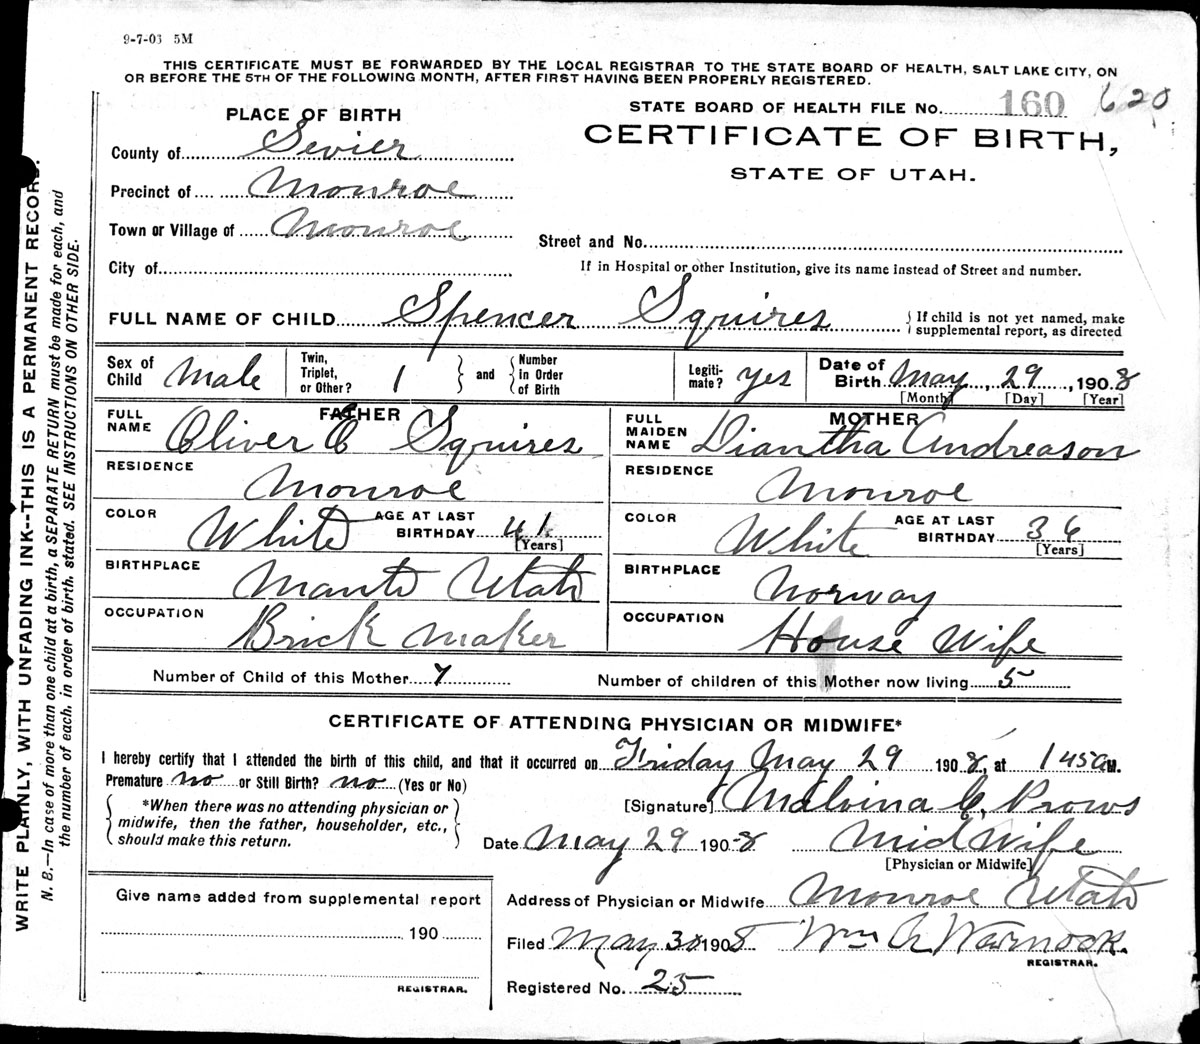 9-7-03 5M
THIS CERTIFICATE MUST BE FORWARDED BY THE LOCAL REGISTRAR TO THE STATE BOARD OF HEALTH, SALT LAKE CITY, ON
OR BEFORE THE 5TH OF THE FOLLOWING MONTH, AFTER FIRST HAVING BEEN PROPERLY REGISTERED.
STATE BOARD OF HEALTH FILE No. 160 620
PLACE OF BIRTH
CERTIFICATE OF BIRTH,
STATE OF UTAH.
County of Sevier
Precinct of Monroe
Town or Village of Monroe
Street and No.
City of
If in Hospital or other Institution, give its name instead of Street and number.
FULL NAME OF CHILD Spencer Squires
{ If child is not yet named, make
supplemental report, as directed
Sex of Child Male
Twin, Triplet, or Other? 1 } and { Number in Order of Birth
Legiti-mate? yes
Date of Birth May, 29, 1908
[Month] [Day] [Year]
FATHER
FULL NAME Oliver C Squires
RESIDENCE Monroe
COLOR White AGE AT LAST BIRTHDAY 41 [Years]
BIRTHPLACE Manti Utah
OCCUPATION Brick Maker
MOTHER
FULL MAIDEN NAME Diantha Andreason
RESIDENCE Monroe
COLOR White AGE AT LAST BIRTHDAY 36 [Years]
BIRTHPLACE Norway
OCCUPATION House Wife
Number of Child of this Mother 7 Number of children of this Mother now living 5
CERTIFICATE OF ATTENDING PHYSICIAN OR MIDWIFE*
I hereby certify that I attended the birth of this child, and that it occurred on Friday May 29 1908, at 1 45 a M.
Premature no or Still Birth? no (Yes or No)
{ *When there was no attending physician or
midwife, then the father, householder, etc.,
should make this return. }
[Signature] Malvina C. Prows
Date May 29 1908 Mid Wife
[Physician or Midwife]
Address of Physician or Midwife Monroe Utah
Filed May 30 1908 Wm A Warnock.
REGISTRAR.
Registered No. 25
Give name added from supplemental report
190
REGISTRAR.
WRITE PLAINLY, WITH UNFADING INK--THIS IS A PERMANENT RECORD.
N. B.—In case of more than one child at a birth, a SEPARATE RETURN must be made for each, and
the number of each, in order of birth, stated. SEE INSTRUCTIONS ON OTHER SIDE.